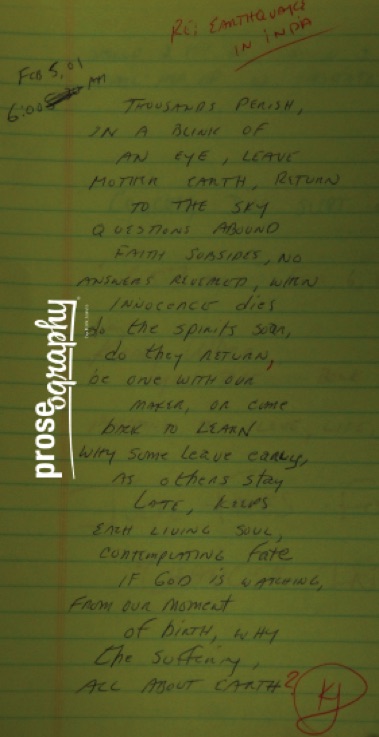 RE: EARTHQUAKE
IN INDIA
FEB 5, 01
6:00 AM
THOUSANDS PERISH,
IN A BLINK OF
AN EYE, LEAVE
MOTHER EARTH, RETURN
TO THE SKY
QUESTIONS ABOUND
FAITH SUBSIDES, NO
ANSWERS REVEALED, WHEN
INNOCENCE dies
do the spirits soar,
do they RETURN,
be one with our
MAKER, OR come
back to LEARN
Why some leave early,
AS others stay
LATE, KEEPS
EACH LIVING SOUL,
CONTEMPLATING fate
IF GOD IS WATCHING,
FROM OUR MOMENT
of birth, why
the suffering,
ALL ABOUT EARTH?
KJ
prose
ography